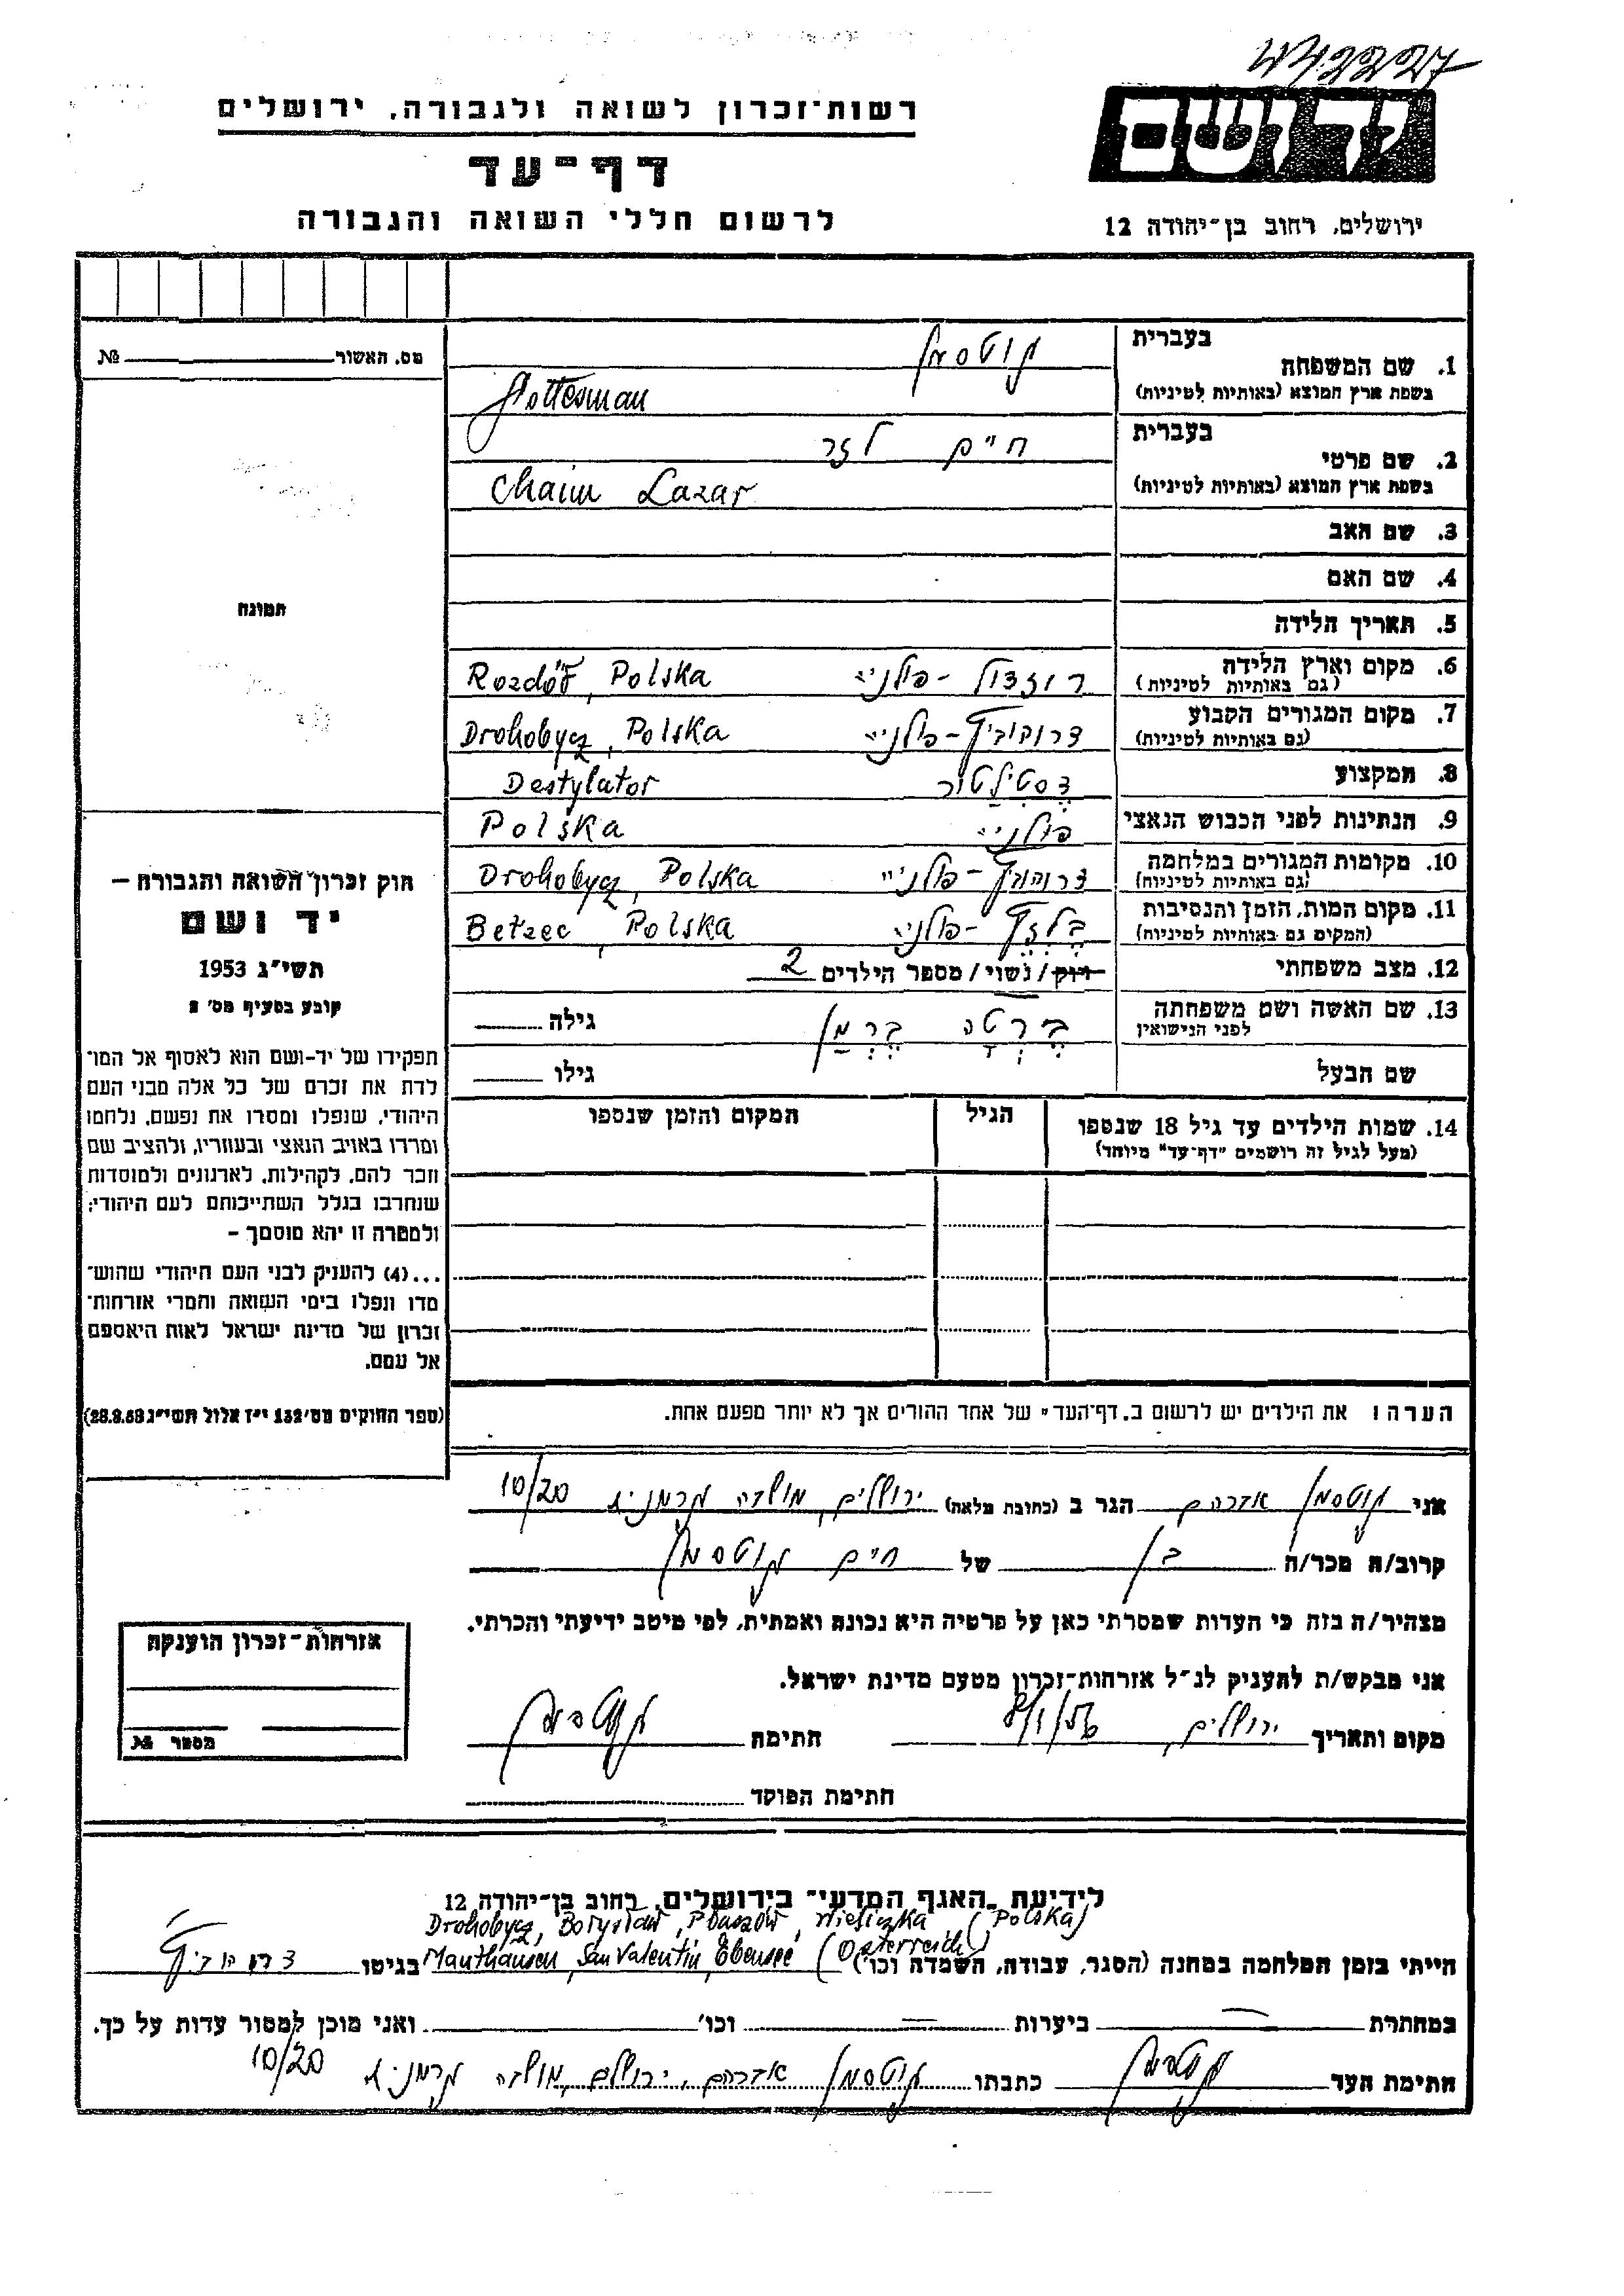 רשות־זכרון לשואה ולגבורה, ירושלים
דף־עד
לרשום חללי השואה והגבורה
ירושלים, רחוב בן־יהודה 12
מס. האשור № 
בעברית גוטסמן
1. שם המשפחה
בשפת ארץ המוצא (באותיות לטיניות) Gottesman
בעברית חיים לזר
2. שם פרטי
בשפת ארץ המוצא (באותיות לטיניות) Chaim Lazar
3. שם האב
4. שם האם
5. תאריך הלידה
6. מקום וארץ הלידה רוזדול - פולניה Rozdół, Polska
(גם באותיות לטיניות)
7. מקום המגורים הקבוע דרוהוביץ - פולניה Drohobycz, Polska
(גם באותיות לטיניות)
8. המקצוע דסטילטור Destylator
9. הנתינות לפני הכבוש הנאצי פולניה Polska
10. מקומות המגורים במלחמה דרוהוביץ - פולניה Drohobycz, Polska
(גם באותיות לטיניות)
11. מקום המות, הזמן והנסיבות בלזץ - פולניה Bełzec, Polska
(המקום גם באותיות לטיניות)
12. מצב משפחתי רוק / נשוי / מספר הילדים 2
13. שם האשה ושם משפחתה ברטה ברמן גילה
לפני הנישואין
שם הבעל גילו
14. שמות הילדים עד גיל 18 שנספו הגיל המקום והזמן שנספו
(מעל לגיל זה רושמים "דף־עד" מיוחד)
הערה: את הילדים יש לרשום ב"דף־העד" של אחד ההורים אך לא יותר מפעם אחת.
תמונה
חוק זכרון השואה והגבורה –
יד ושם
תשי״ג 1953
קובע בסעיף מס׳ 2
תפקידו של יד-ושם הוא לאסוף אל המו־
לדת את זכרם של כל אלה מבני העם
היהודי, שנפלו ומסרו את נפשם, נלחמו
ומרדו באויב הנאצי ובעוזריו, ולהציב שם
וזכר להם, לקהילות, לארגונים ולמוסדות
שנחרבו בגלל השתייכותם לעם היהודי;
ולמטרה זו יהא מוסמך –
...(4) להעניק לבני העם היהודי שהוש־
מדו ונפלו בימי השואה והמרי אזרחות־
זכרון של מדינת ישראל לאות היאספם
אל עמם.
(ספר החוקים מס׳ 132 י״ז אלול תשי״ג 28.8.53)
אני גוטסמן אברהם הגר ב (כתובת מלאה) ירושלים, מושבה גרמנית 10/20
קרוב/ה מכר/ה בן של חיים גוטסמן
מצהיר/ה בזה כי העדות שמסרתי כאן על פרטיה היא נכונה ואמתית, לפי מיטב ידיעתי והכרתי.
אני מבקש/ת להעניק לנ״ל אזרחות־זכרון מטעם מדינת ישראל.
מקום ותאריך ירושלים, חתימה גוטסמן
חתימת הפוקד
אזרחות־זכרון הוענקה
מספר №
לידיעת האגף המדעי־ בירושלים, רחוב בן־יהודה 12
Drohobycz, Borysław, Płaszów, Wieliczka (Polska)
הייתי בזמן המלחמה במחנה (הסגר, עבודה, השמדה וכו׳) Mauthausen, San Valentin, Ebensee (Österreich) בגיטו דרוהוביץ
במחתרת — ביערות — וכו׳ ואני מוכן למסור עדות על כך.
חתימת העד גוטסמן כתבתו גוטסמן אברהם, ירושלים, מושבה גרמנית 10/20